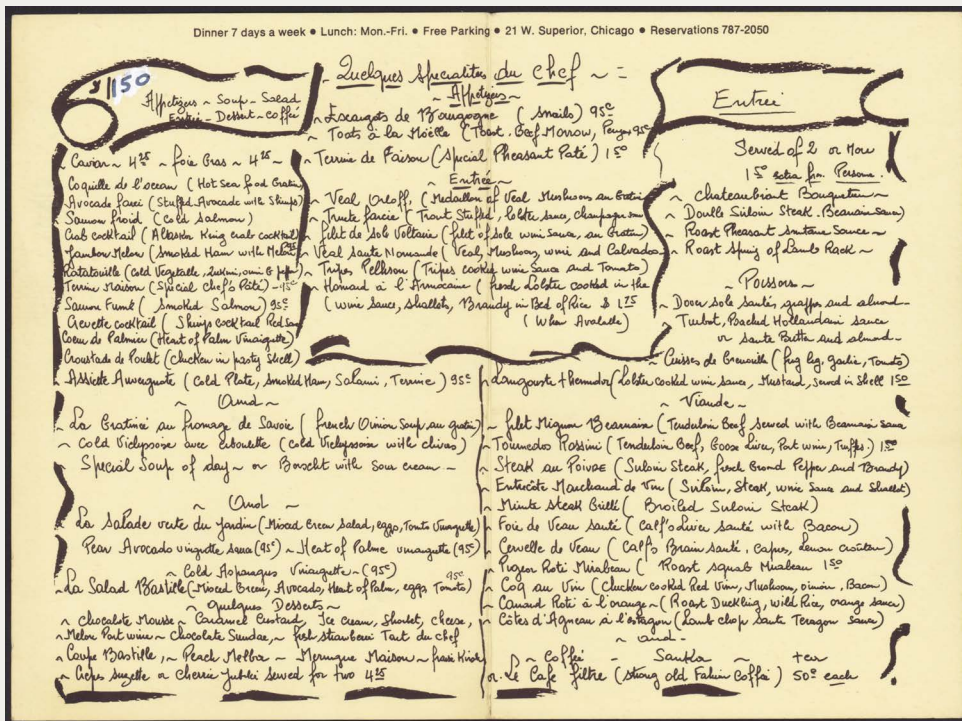 Dinner 7 days a week • Lunch: Mon.-Fri. • Free Parking • 21 W. Superior, Chicago • Reservations 787-2050
$ 11150
Appetizers ~ Soup - Salad
Entrée - Dessert - Coffée
~ Caviar ~ 4 25 ~ foie Gras ~ 4 25 ~
Coquille de l'ocean (Hot Sea food Gratin)
Avocado farci (Stuffed Avocado with Shrimps)
Saumon froid (Cold Salmon)
Crab cocktail (Alaskan King crab cocktail)
Jambon Melon (Smoked Ham with Melon) 95
Ratatouille (Cold Vegetable, Zukini, onion & pepper)
Terrine Maison (Special Chef's Paté) - 95¢
Saumon Fumé (Smoked Salmon) 95¢
Crevette cocktail (Shrimps cocktail Red Sauce)
Coeur de Palmier (Heart of Palm Vinaigrette)
Croustade de Poulet (Chicken in pasty Shell)
~ Assiette Auvergnate (Cold Plate, Smoked Ham, Salami, Terrine) 95¢
~ And ~
~ La Gratinée au fromage de Savoie (french Onion Soup, au gratin)
~ Cold Vichyssoise avec ciboulette (Cold Vichyssoise with chives)
Special Soup of day ~ or Borscht with Sour cream ~
~ And ~
~ La Salade verte du Jardin (Mixed Green Salad, eggs, Tomato Vinaigrette)
Pear Avocado vinaigrette sauce (95¢) ~ Heart of Palme vinaigrette (95¢)
~ Cold Asparagus Vinaigrette ~ (95¢)
~ La Salad Bastille (Mixed Green, Avocado, Heart of Palm, eggs Tomato) 95¢
~ Quelques Desserts ~
~ Chocolate Mousse ~ Caramel Custard, Ice cream, Sherbet, cheese,
~ Melon Port wine ~ chocolate Sundae, ~ fresh strawberri Tart du chef
~ Coupe Bastille, ~ Peach Melba ~ Meringue Maison ~ Kirch
~ Crepes Suzette or Cherrie Jubilee served for two 4 25
~ Quelques Specialites du Chef ~
~ Appetizers ~
~ Escargots de Bourgogne (Snails) 95¢
~ Toasts à la Moëlle (Toast, Beef Marrow, 95¢
~ Terrine de Faison (Special Pheasant Paté) 1 50
~ Entrée ~
~ Veal Orloff, (Medaillon of Veal Mushrooms au Gratin
~ Truite farcie (Trout Stuffed, lobster sauce, champagne
~ filet de Sole Voltaire (filet of sole wine Sauce, au Gratin)
~ Veal Sauté Normande (Veal, Mushroom, wine and Calvados
~ Tripes Pellison (Tripes cooked wine Sauce and Tomato)
~ Homard à l'Armocaine (fresh Lobster cooked in the
(Wine Sauce, Shallots, Brandy in Bed of Rice $ 1 75
(When Available)
Entrée
Served of 2 or More
1 50 extra from Persone.
~ Chateaubriant Bouquetière ~
~ Double Sirloin Steak. Bearnaise Sauce
~ Roast Pheasant Smitane Sauce ~
~ Roast Spring of Lamb Rack ~
~ Poissons ~
~ Dover sole sauté, grapes and almond ~
~ Turbot, Poached Hollandaise sauce
or saute Butter and almond ~
~ Cuisses de Grenouille (frog leg, garlic, Tomato)
~ Langouste thermidor (Lobster cooked wine sauce, Mustard, served in shell 1 50
~ Viande ~
~ filet Mignon Bearnaise (Tenderloin Beef served with Bearnaise Sauce
~ Tournedos Rossini (Tenderloin Beef, Goose Liver, Port wine, Truffes) 1 50
~ Steak au Poivre (Sirloin Steak, fresh Ground Pepper, and Brandy)
~ Entrecote Marchand de Vin (Sirloin, Steak, wine Sauce and Shallot)
~ Minute Steak Grillé (Broiled Sirloin Steak)
~ Foie de Veau sauté (Calf's Liver sauté with Bacon)
~ Cervelle de Veau (Calf's Brain sauté, Capers, Lemon crouton)
~ Pigeon Roti Mirabeau (Roast squab Mirabeau 1 50
~ Coq au Vin (Chicken cooked Red Vin, Mushroom, oinion, Bacon)
~ Canard Roti à l'orange ~ (Roast Duckling, wild Rice, orange sauce)
~ Côtes d'Agneau à l'estragon (Lamb chop sauté Taragon sauce)
~ and ~
~ Coffée ~ Sanka ~ tea
or Le Cafe filtre (strong old Coffée) 50¢ each